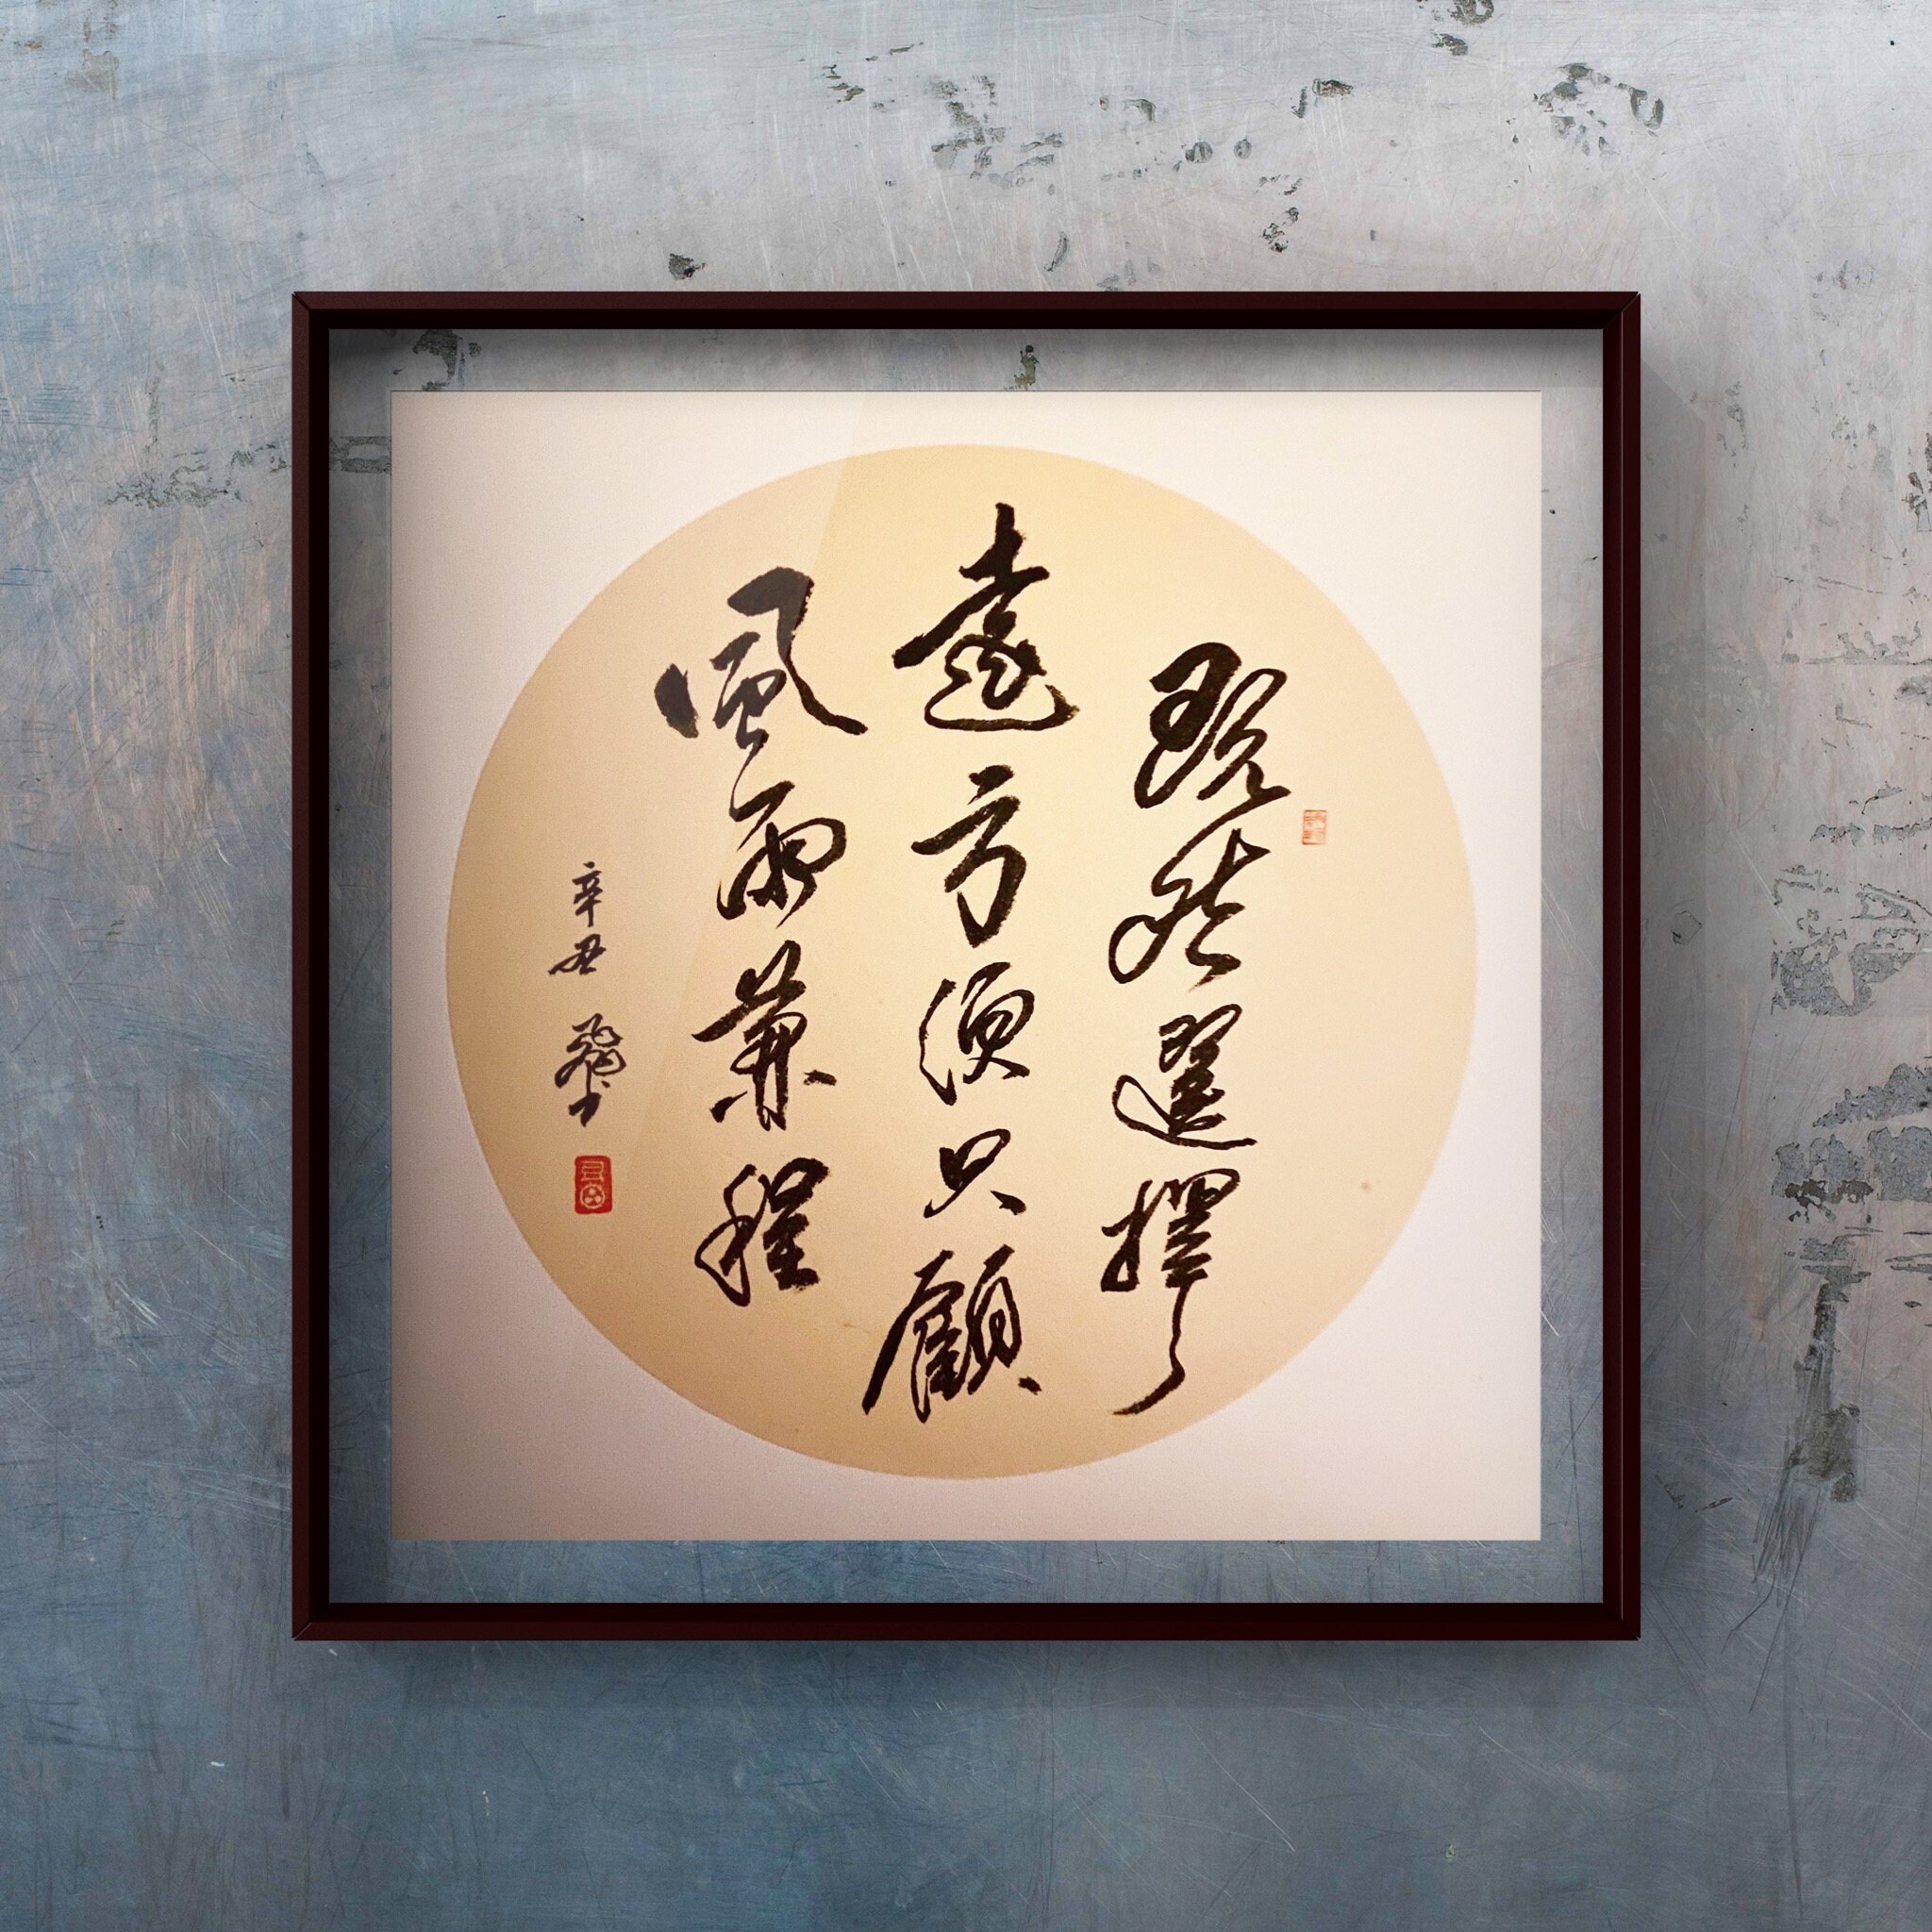 既然選擇了
遠方便只顧
風雨兼程
辛丑